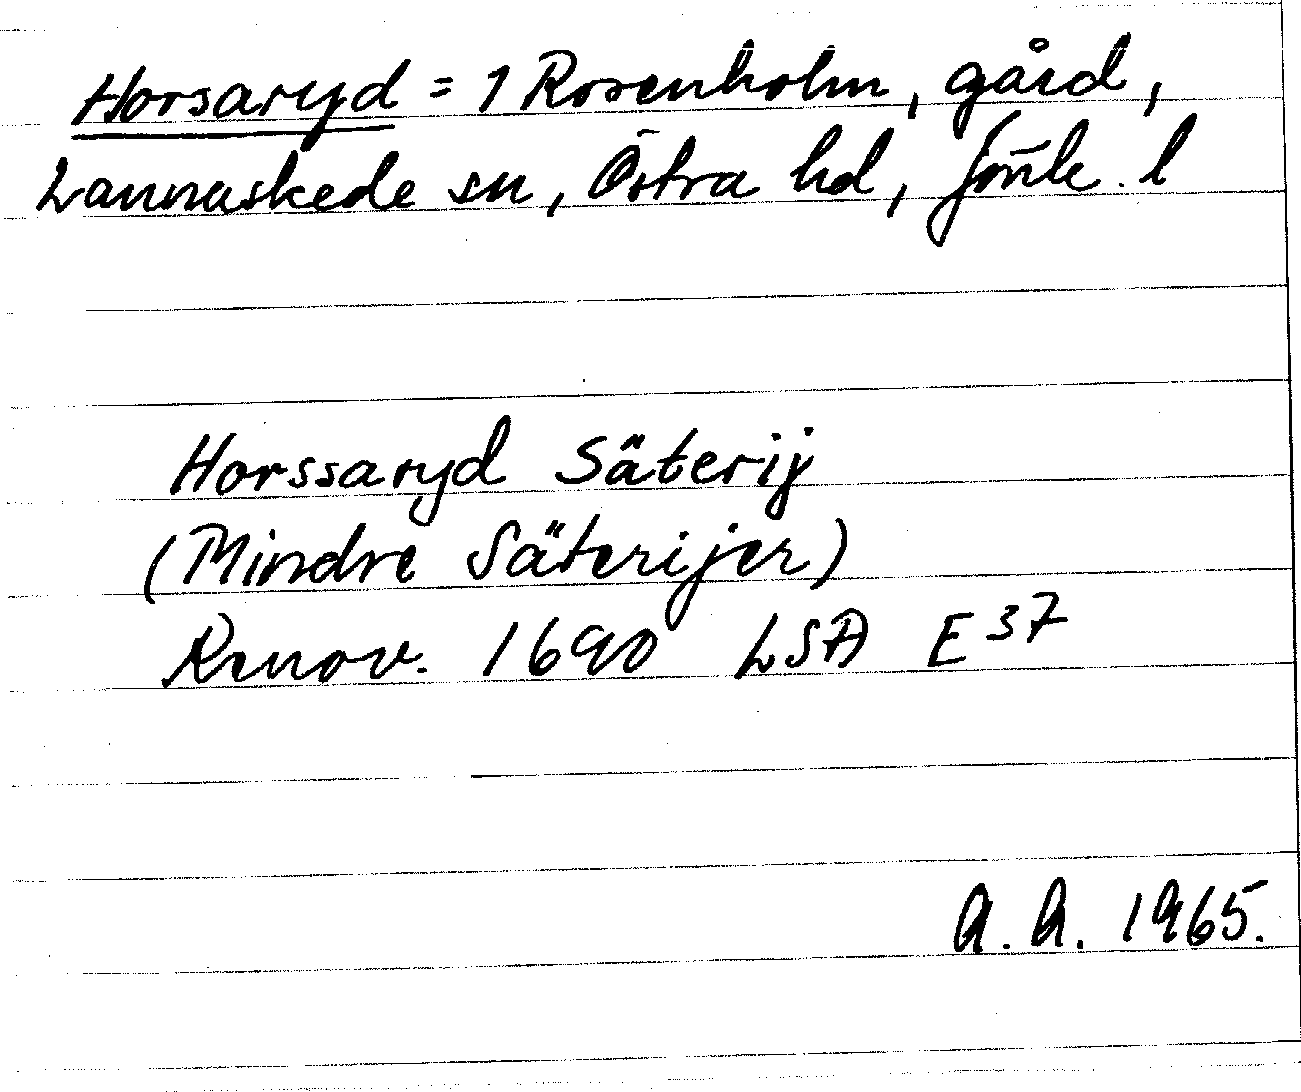 Horsaryd = 1 Rosenholm, gård,
Lannaskede sn, Östra hd, Jönk. l
Horssaryd Säterij
(Mindre Säterijer)
Renov. 1690 LSA E 37
A. A. 1965.